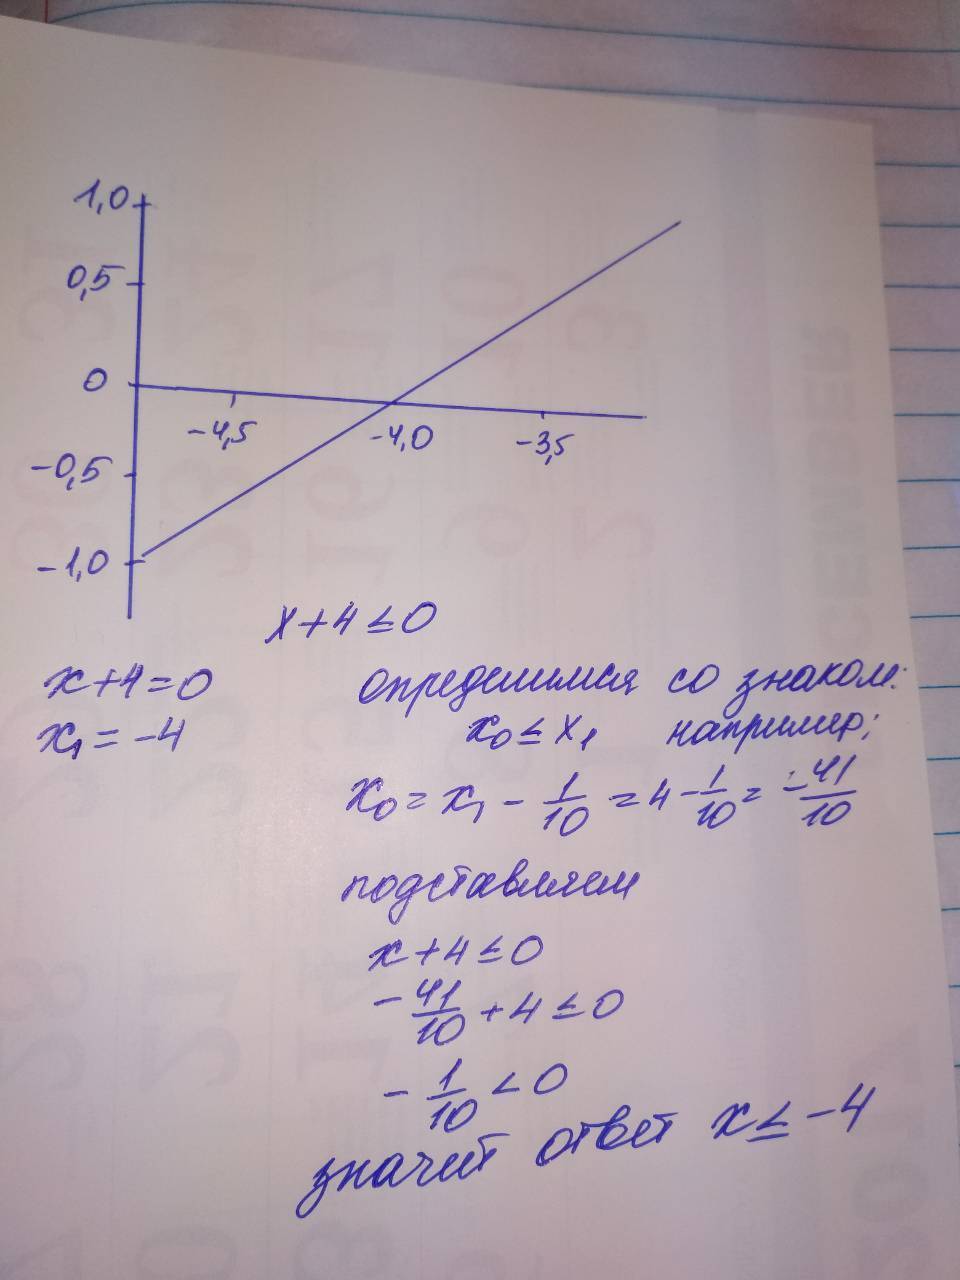 1,0
0,5
0
-4,5 -4,0 -3,5
-0,5
-1,0
x+4≤0
x+4=0
x₁=-4
определимся со знаком:
x₀≤x₁ например;
x₀=x₁-1/10=4-1/10=-41/10
подставляем
x+4≤0
-41/10+4≤0
-1/10<0
значит ответ x≤-4